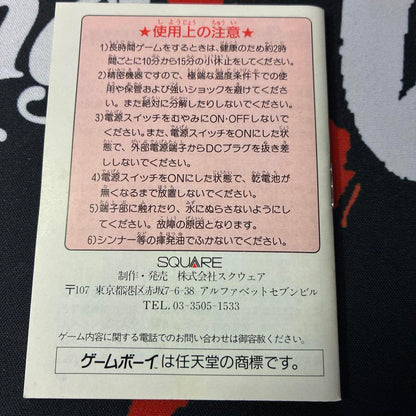 ★使用上の注意★
1)長時間ゲームをするときは、健康のため約2時
間ごとに10分から15分の小休止をしてください。
2)精密機器ですので、極端な温度条件下での使
用や保管および強いショックを避けてくださ
い。また絶対に分解したりしないでください。
3)電源スイッチをむやみにON・OFFしないで
ください。また、電源スイッチをONにした状
態で、外部電源端子からDCプラグを抜き差
ししないでください。
4)電源スイッチをONにした状態で、乾電池が
無くなるまで放置しないでください。
5)端子部に触れたり、水にぬらさないようにし
てください。故障の原因となります。
6)シンナー等の揮発油でふかないでください。
SQUARE
制作・発売 株式会社スクウェア
〒107 東京都港区赤坂7-6-38 アルファベットセブンビル
TEL.03-3505-1533
ゲーム内容に関する電話でのお問い合わせは御容赦ください。
ゲームボーイは任天堂の商標です。